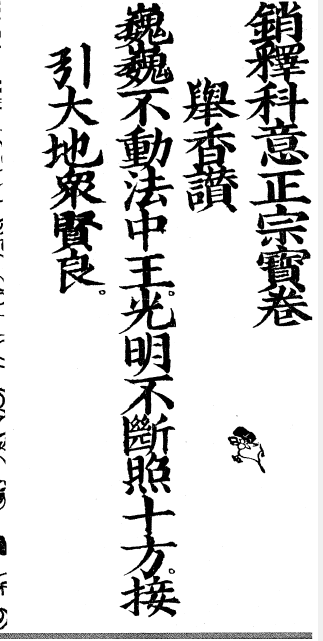 銷釋科意正宗寳卷
舉香讃
巍巍不動法中王。光明不斷照十方。接
引大地衆賢良。